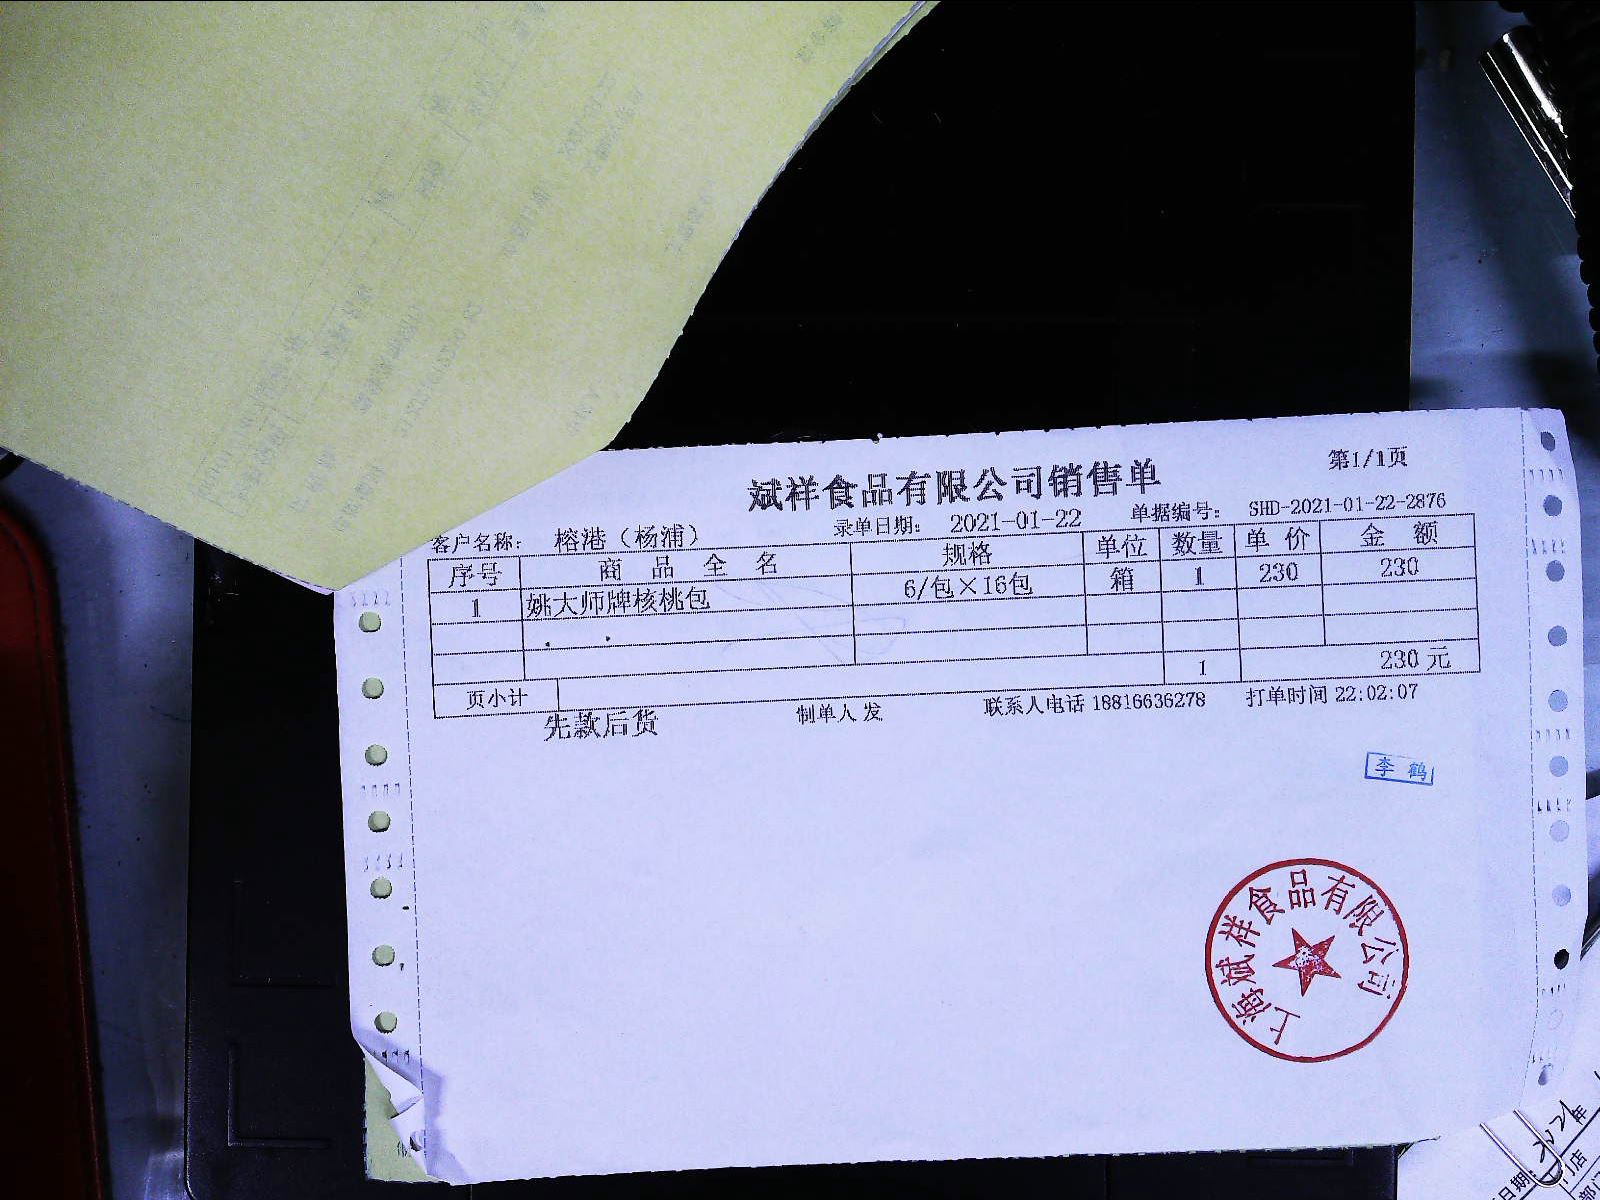 第1/1页
斌祥食品有限公司销售单
客户名称: 榕港（杨浦） 录单日期: 2021-01-22 单据编号: SHD-2021-01-22-2876
序号 商品全名 规格 单位 数量 单价 金额
1 姚大师牌核桃包 6/包×16包 箱 1 230 230
页小计 1 230元
先款后货 制单人 发 联系人电话 18816636278 打单时间 22:02:07
李鹤
上海斌祥食品有限公司
2021年
日期:
店